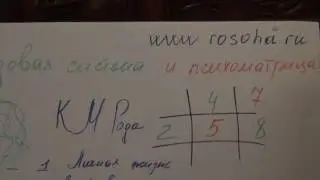 www rosoha.ru
довая система и психоматрица
КМ Рода
4 7
2 5 8
- 1 Личная жизнь